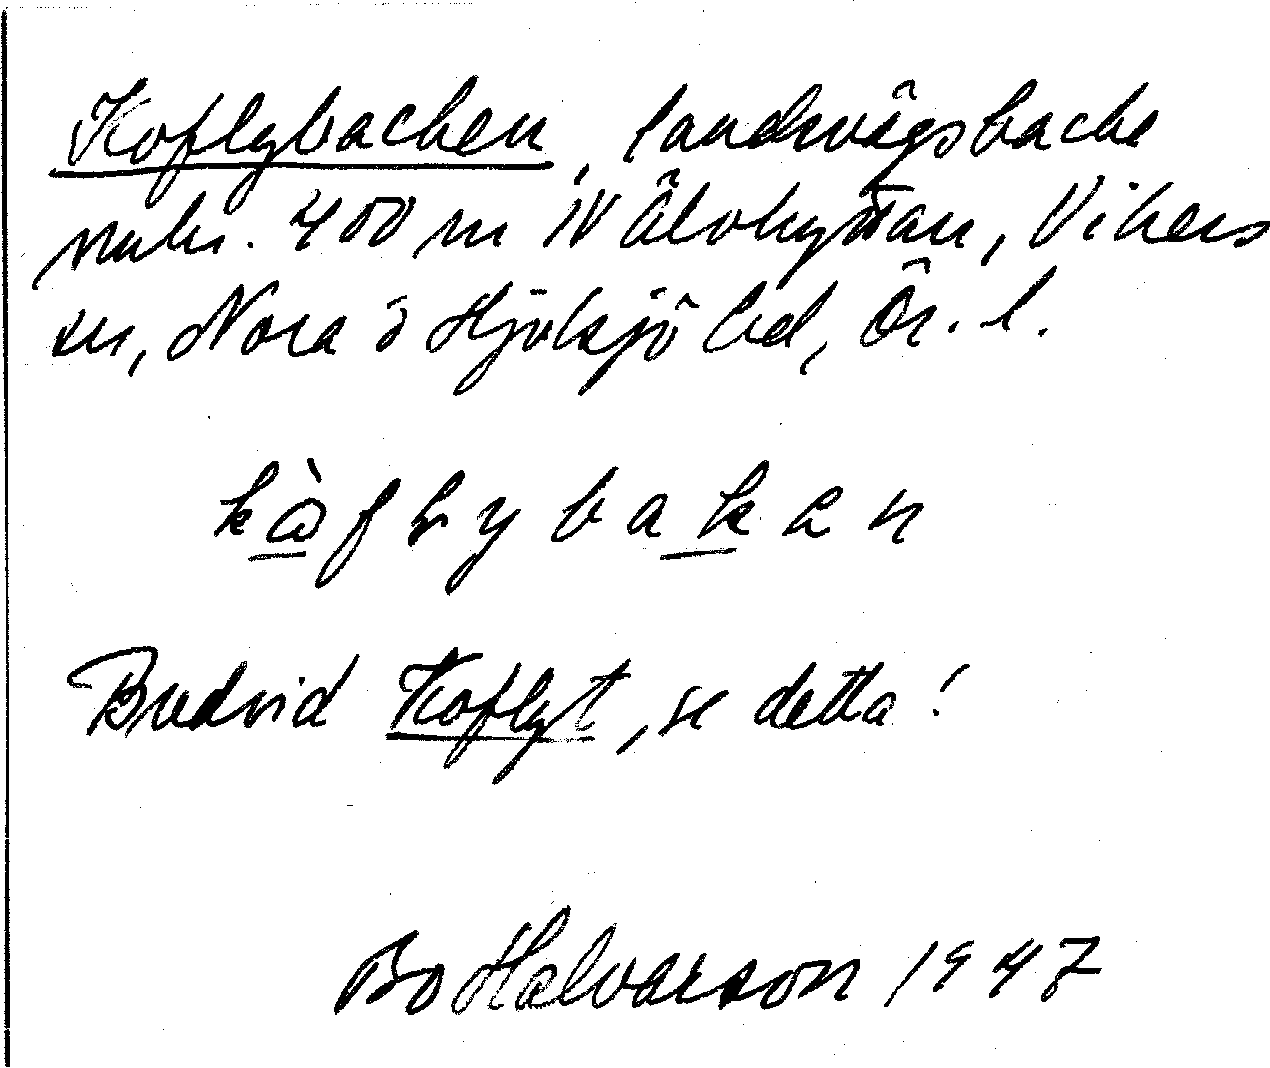 Koflybacken, landsvägsbacke
omkr. 400 m N Älvhyttan, Vikers
sn, Nora o Hjulsjö bsd, Ör. l.
kòflybakan
Bredvid Koflyt, se detta!
Bo Halvarson 1947